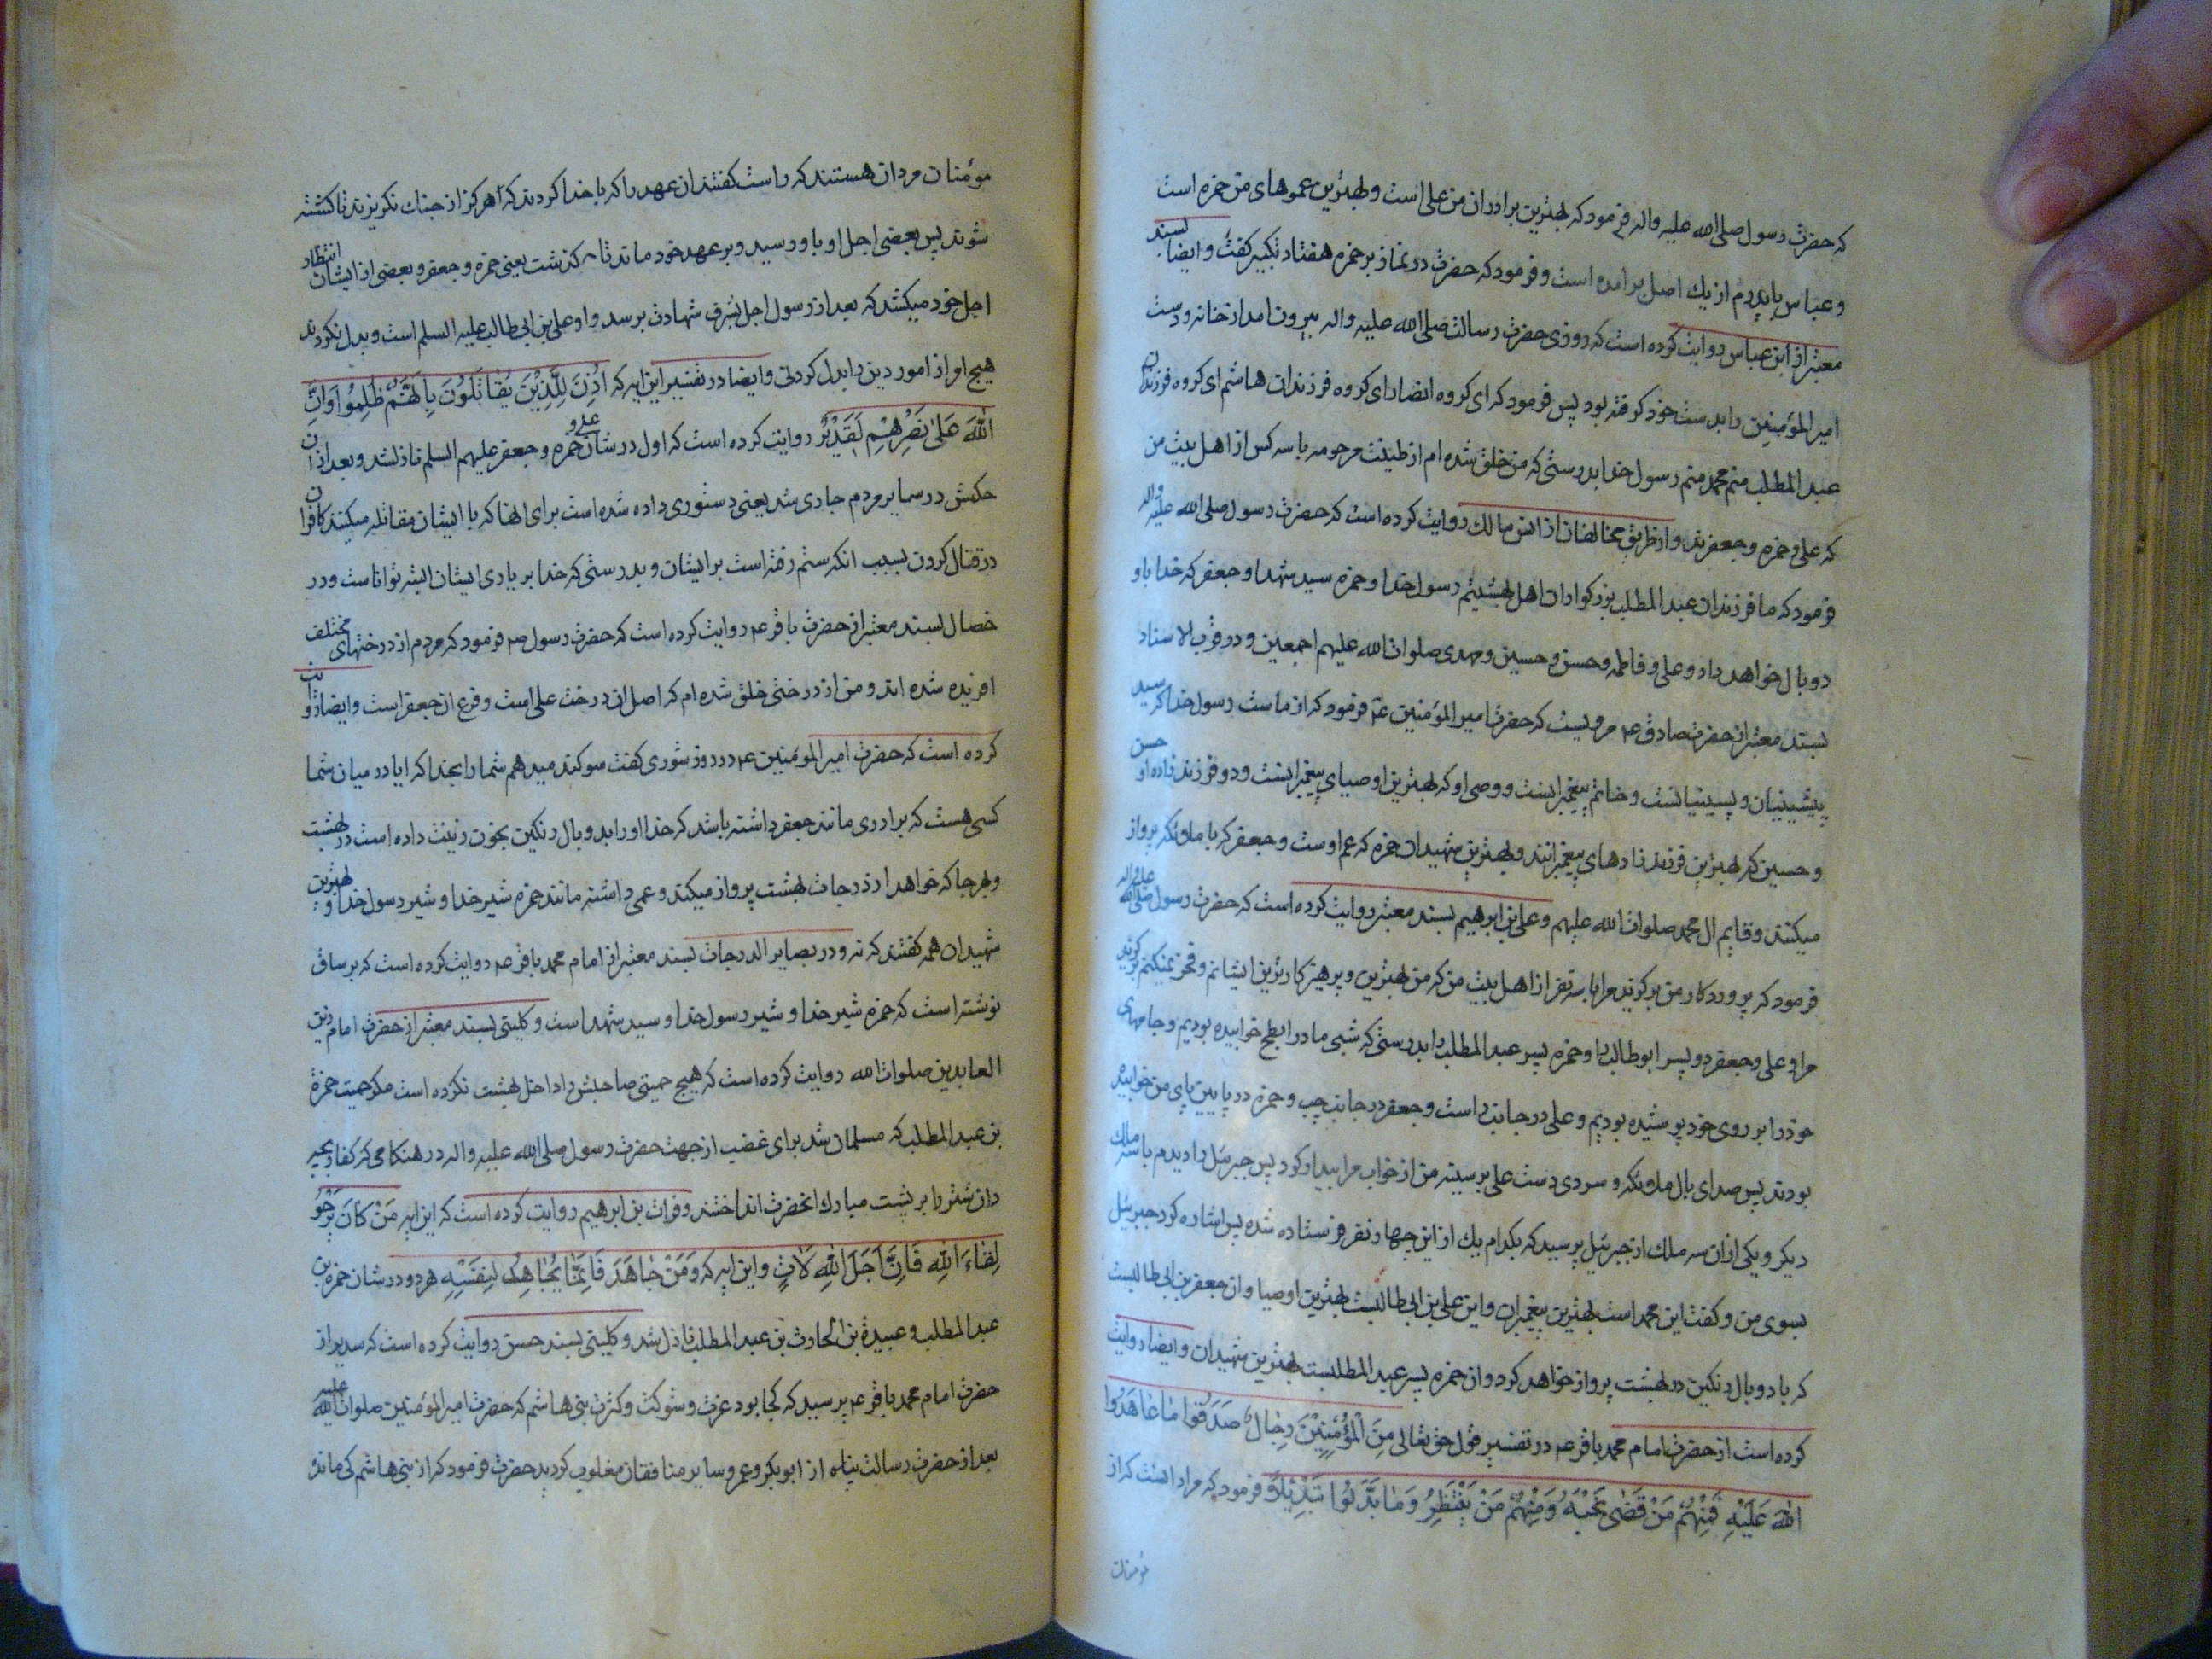 که حضرت رسول صلی الله علیه واله فرمود که بهترین برادران من علی است و بهترین عموهای من حمزه است
و عباس با پدرم از یك اصل برامده است و فرمود که حضرت در نماز بر حمزه هفتاد تکبیر کفت و ایضا بسند
معتبر از ابن عباس روایت کرده است که روزی حضرت رسالت صلی الله علیه واله بیرون امد از خانه و دست
امیر المؤمنین را بدست خود کرفته بود پس فرمود که ای کروه انصار ای کروه فرزندان هاشم ای کروه فرزندان
عبد المطلب منم محمد منم رسول خدا بدرستی که من خلق شده ام از طینت مرحومه با سه کس از اهل بیت من
که علی و حمزه و جعفرند و از طریق مخالفان از انس مالك روایت کرده است که حضرت رسول صلی الله علیه واله
فرمود که ما فرزندان عبد المطلب بزرکواران اهل بهشتیم رسول خدا و حمزه سید شهدا و جعفر که خدا باو
دو بال خواهد داد و علی و فاطمه و حسن و حسین و مهدی صلوات الله علیهم اجمعین و در قرب الاسناد
بسند معتبر از حضرت صادق ع مرویست که حضرت امیر المؤمنین ع فرمود که از ماست رسول خدا که سید
پیشینیان و پسینیانست و خاتم پیغمبرانست و وصی او که بهترین اوصیای پیغمبرانست و دو فرزند زاده او حسن
و حسین که بهترین فرزند زادهای پیغمبرانند و بهترین شهیدان حمزه که عم اوست و جعفر که با ملائکه پرواز
میکند و قایم ال محمد صلوات الله علیهم و علی بن ابرهیم بسند معتبر روایت کرده است که حضرت رسول صلی الله علیه واله
فرمود که پروردکار من برکزید مرا با سه نفر از اهل بیت من که من بهترین و پرهیزکارترین ایشانم و فخر نمیکنم برکزید
مرا و علی و جعفر دو پسر ابو طالب را و حمزه پسر عبد المطلب را بدرستی که شبی ما در ابطح خوابیده بودیم و جامهای
خود را بر روی خود پوشیده بودیم و علی در جانب راست و جعفر در جانب چپ و حمزه در پایین پای من خوابیده
بودند پس صدای بال ملائکه و سردی دست علی بر سینه من از خواب مرا بیدار کرد پس جبرئیل را دیدم با سه ملك
دیکر و یکی از ان سه ملك از جبرئیل پرسید که بکدام یك از این چهار نفر فرستاده شده پس اشاره کرد جبرئیل
بسوی من و کفت این محمد است بهترین پیغمبران و این علی بن ابی طالبست بهترین اوصیا و ان جعفر بن ابی طالبست
که با دو بال رنکین در بهشت پرواز خواهد کرد و ان حمزه پسر عبد المطلبست بهترین شهیدان و ایضا روایت
کرده است از حضرت امام محمد باقر ع در تفسیر قول حق تعالی مِنَ الْمُؤْمِنِیْنَ رِجٰالٌ صَدَقُوا مٰا عٰاهَدُوا
اللهَ عَلَیْهِ فَمِنْهُمْ مَنْ قَضٰی نَحْبَهُ وَمِنْهُمْ مَنْ یَنْتَظِرُ وَمٰا بَدَّلُوا تَبْدِیْلًا فرمود که مراد انست که از
مؤمنان
مؤمنان مردان هستند که راست کفتند ان عهد را که با خدا کردند که هرکز از جنك نکریزند تا کشته
شوند پس بعضی اجل او باو رسید و بر عهد خود ماند تا کذشت یعنی حمزه و جعفر و بعضی از ایشان انتظار
اجل خود میکشد که بعد از رسول اجل بشرف شهادت برسد و او علی بن ابی طالب علیه السلم است و بدل نکردند
هیچ او از امور دین را بدل کردنی و ایضا در تفسیر این ایه که اُذِنَ لِلَّذِیْنَ یُقٰاتَلُوْنَ بِاَنَّهُمْ ظُلِمُوا وَاِنَّ
اللهَ عَلیٰ نَصْرِهِمْ لَقَدِیْرٌ روایت کرده است که اول در شان علی و حمزه و جعفر علیهم السلم نازلشد و بعد از ان
حکمش در سایر مردم جاری شد یعنی دستوری داده شده است برای انها که با ایشان مقاتله میکنند کافران
در قتال کردن بسبب انکه ستم رفته است بر ایشان و بدرستی که خدا بر یاری ایشان البته تواناست و در
خصال بسند معتبر از حضرت باقر ع روایت کرده است که حضرت رسول ص فرمود که مردم از درختهای مختلف
افریده شده اند و من از درختی خلق شده ام که اصل ان درخت علی است و فرع ان جعفر است و ایضا روایت
کرده است که حضرت امیر المؤمنین ع در روز شوری کفت سوکند میدهم شما را بخدا که ایا در میان شما
کسی هست که برادری مانند جعفر داشته باشد که خدا او را بدو بال رنکین بخون زینت داده است در بهشت
و بهر جا که خواهد از درجات بهشت پرواز میکند و عمی داشته مانند حمزه شیر خدا و شیر رسول خدا و بهترین
شهیدان همه کفتند که نه و در بصایر الدرجات بسند معتبر از امام محمد باقر ع روایت کرده است که بر ساق
نوشته است که حمزه شیر خدا و شیر رسول خدا و سید شهداست و کلینی بسند معتبر از حضرت امام زین
العابدین صلوات الله روایت کرده است که هیچ حمیتی صاحبش را داخل بهشت نکرده است مکر حمیت حمزة
بن عبد المطلب که مسلمان شد برای غضب از جهت حضرت رسول صلی الله علیه واله در هنکامی که کفار بچه
دان شتر را بر پشت مبارك انحضرت انداختند و فرات بن ابرهیم روایت کرده است که این ایه مَنْ کٰانَ یَرْجُو
لِقٰاءَ اللهِ فَاِنَّ اَجَلَ اللهِ لَاٰتٍ و این ایه که وَمَنْ جٰاهَدَ فَاِنَّمٰا یُجٰاهِدُ لِنَفْسِهِ هر دو در شان حمزه بن
عبد المطلب و عبیدة بن الحارث بن عبد المطلب نازل شد و کلینی بسند حسن روایت کرده است که سدیر از
حضرت امام محمد باقر ع پرسید که کجا بود عزت و شوکت و کثرت بنی هاشم که حضرت امیر المؤمنین صلوات الله علیه
بعد از حضرت رسالت پناه از ابوبکر و عمر و سایر منافقان مغلوب کردید حضرت فرمود که از بنی هاشم کی مانده